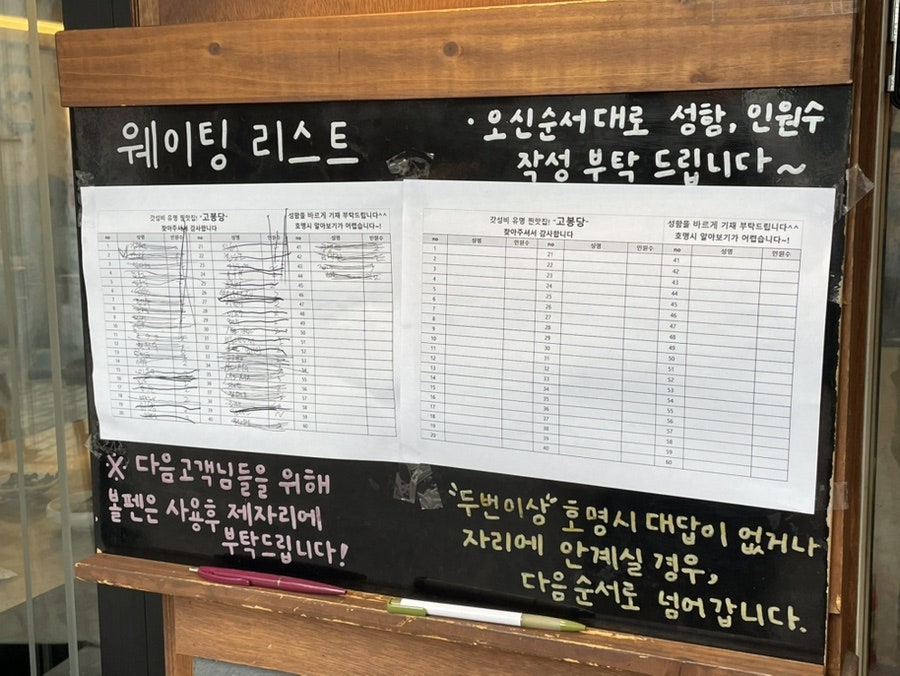 웨이팅 리스트
· 오신순서대로 성함, 인원수
작성 부탁 드립니다~
갓성비 유명 찐맛집! "고봉당"
찾아주셔서 감사합니다
성함을 바르게 기재 부탁드립니다^^
호명시 알아보기가 어렵습니다~!
no 성명 인원수 21 성명 인원수 no 성명 인원수
1 21 41
2 22 42
3 23 43
4 24 44
5 25 45
6 26 46
7 27 47
8 28 48
9 29 49
10 30 50
11 31 51
12 32 52
13 33 53
14 34 54
15 35 55
16 36 56
17 37 57
18 38 58
19 39 59
20 40 60
갓성비 유명 찐맛집! "고봉당"
찾아주셔서 감사합니다
성함을 바르게 기재 부탁드립니다^^
호명시 알아보기가 어렵습니다~!
no 성명 인원수 no 성명 인원수 no 성명 인원수
1 21 41
2 22 42
3 23 43
4 24 44
5 25 45
6 26 46
7 27 47
8 28 48
9 29 49
10 30 50
11 31 51
12 32 52
13 33 53
14 34 54
15 35 55
16 36 56
17 37 57
18 38 58
19 39 59
20 40 60
※ 다음고객님들을 위해
볼펜은 사용후 제자리에
부탁드립니다!
"두번이상" 호명시 대답이 없거나
자리에 안계실 경우,
다음순서로 넘어갑니다.